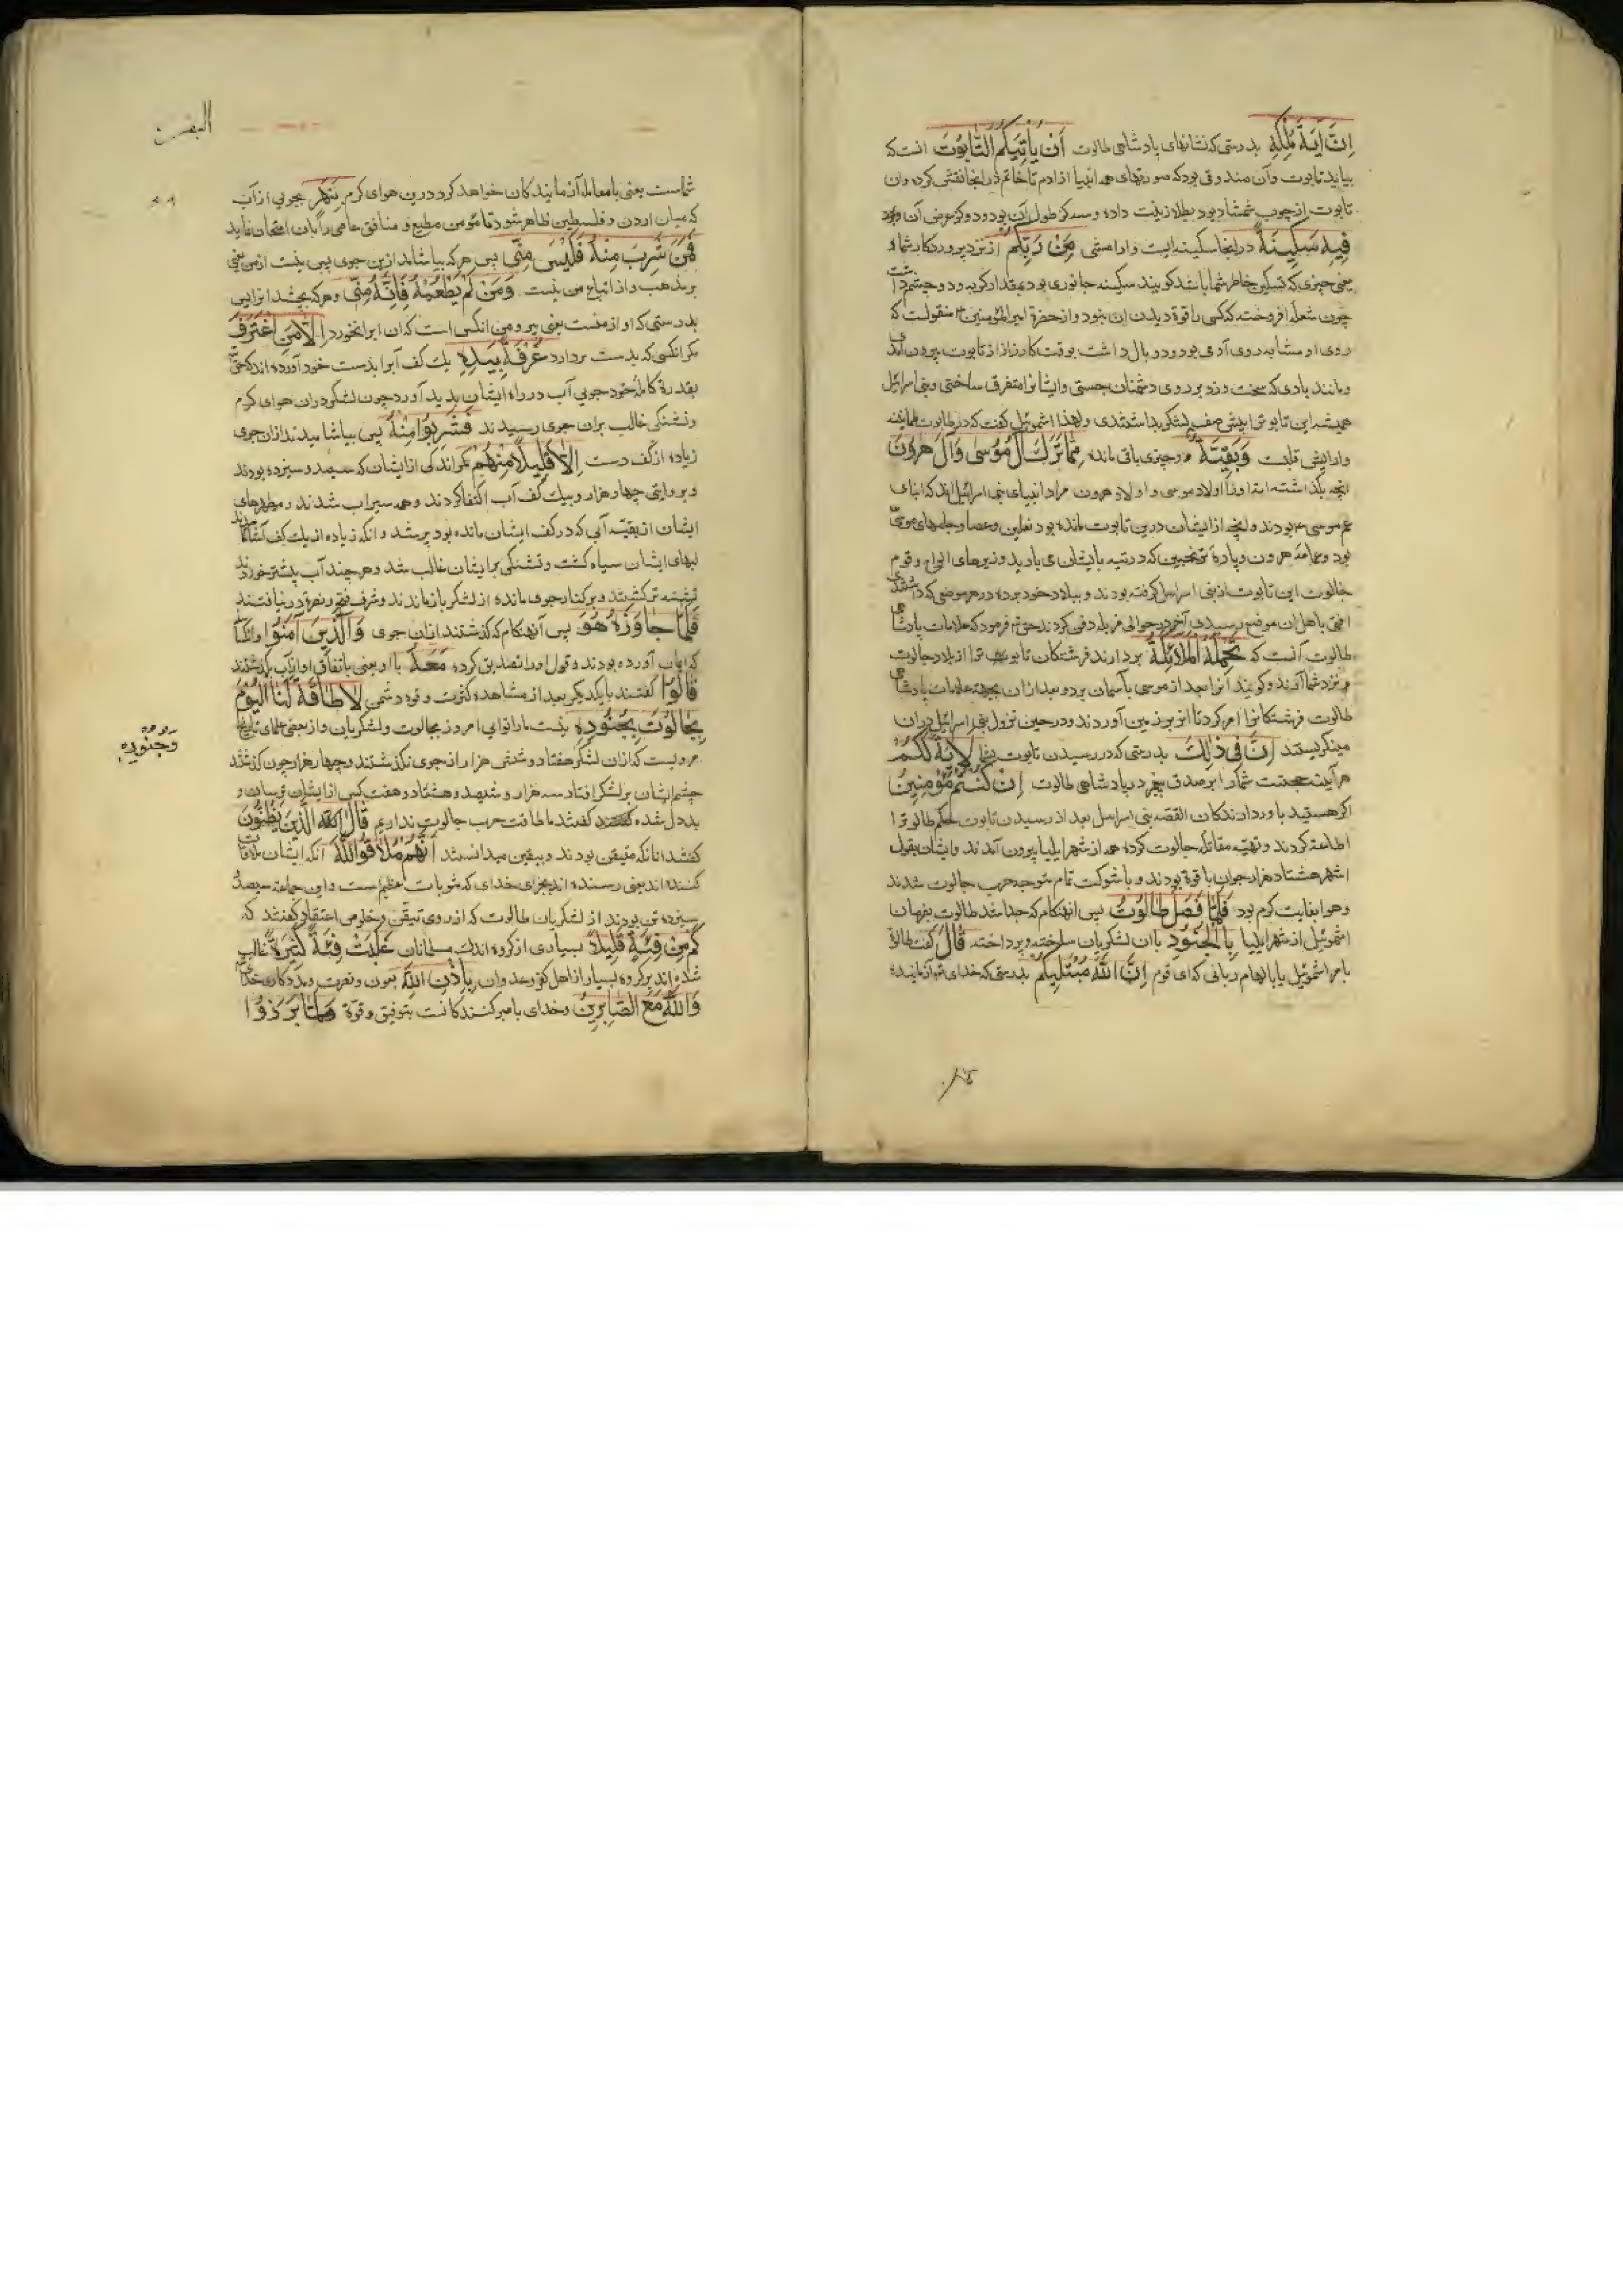 اِنَّ اٰیَةَ مُلْکِهٖ بدرستی که نشانهای پادشاهی طالوت اَنْ یَاْتِیَکُمُ التَّابُوتُ انست که
بیاید تابوت وآن صندوقی بود که صورتهای همه انبیا از ادم تا خاتم در انجا نقش کرده وان
تابوت از چوب شمشاد بود بطلا زینت داده وسه کز طول آن بود و دو کز عرض آن بود
فِیهِ سَکِینَةٌ در انجا سکینه ایست وارامشی مِنْ رَبِّکُمْ از نزد پروردکار شما
یعنی چیزی که تسکین خاطر شما باشد کویند سکینه جانوری بود بمقدار کربه ودو چشم داشت
چون شعله افروخته که کسی را قوة دیدن ان نبود واز حضرة امیر المؤمنین ع منقولست که
روی او مشابه روی آدمی بود ودو بال داشت بوقت کارزار از تابوت بیرون آمدی
ومانند بادی که سخت وزد بر روی دشمنان جستی وایشانرا متفرق ساختی وبنی اسرائیل
همیشه این تابوترا پیش صف لشکر بداشتندی ولهذا اشموئیل کفت که در تابوت طمانینه
وارامش قلبست وَبَقِیَّةٌ وچیزی باقی مانده مِمَّا تَرَکَ اٰلُ مُوسٰی وَاٰلُ هٰرُونَ
انچه بکذاشته اند اورا اولاد موسی و اولاد هرون مراد انبیای بنی اسرائیل اند که ابنای
عم موسی بودند وانچه از ایشان درین تابوت مانده بود نعلین وعصا وجامهای موسی
بود وعمامه هرون وپارهٔ ترنجبین که در تیه بایشان می بارید وریزهای الواح وقوم
جالوت این تابوت از بنی اسرائیل کرفته بودند و ببلاد خود برده در هر موضعی که داشتندی
افتی باهل ان موضع رسیدی آخر در حوالی مزبله دفن کردند حق تع فرمود که علامات پادشاهی
طالوت آنست که تَحْمِلُهُ الْمَلٰئِکَةُ بردارند فرشتکان تابوت را از بلاد جالوت
و نزد شما آرند وکویند آنرا بعد از موسی بآسمان برد وبعد ازان بجهة علامات پادشاهی
طالوت فرشتکانرا امر کرد تا انرا بر زمین آوردند ودر حین نزول بنی اسرائیل دران
مینکریستند اِنَّ فِی ذٰلِکَ بدرستی که در رسیدن تابوت بشما لَاٰیَةً لَکُمْ
هر آینه حجتست شما را بر صدق پیغمبر در پادشاهی طالوت اِنْ کُنْتُمْ مُؤْمِنِینَ
اکر هستید باور دارندکان القصه بنی اسرائیل بعد از رسیدن تابوت حکم طالوترا
اطاعت کردند وتهیه مقاتله جالوت کرده همه از شهر ایلیا بیرون آمدند وایشان بقول
اشهر هشتاد هزار جوان باقوة بودند و باشوکت تمام متوجه حرب جالوت شدند
وهوا بغایت کرم بود فَلَمَّا فَصَلَ طَالُوتُ پس انهنکام که جدا شد طالوت بفرمان
اشموئیل از شهر ایلیا بِالْجُنُودِ باان لشکریان ساخته وپرداخته قَالَ کفت طالوت
بامر اشموئیل یا بالهام ربانی که ای قوم اِنَّ اللّٰهَ مُبْتَلِیکُمْ بدرستی که خدای تع آزماینده
البقرة
شماست یعنی با معامله آزمایندکان خواهد کرد درین هوای کرم بِنَهَرٍ بجویی از آب
که میان اردن وفلسطین ظاهر شود تا مؤمن مطیع و منافق عاصی را بآن امتحان نماید
فَمَنْ شَرِبَ مِنْهُ فَلَیْسَ مِنِّی پس هرکه بیاشامد ازین جوی پس نیست از من یعنی
بر مذهب و از اتباع من نیست وَمَنْ لَمْ یَطْعَمْهُ فَاِنَّهُ مِنِّی وهرکه نچشد انرا پس
بدرستی که او از منست یعنی پیرو من انکس است که ان ابرا نخورد اِلَّا مَنِ اغْتَرَفَ
مکر انکسی که بدست بردارد غُرْفَةً بِیَدِهٖ یک کف آبرا بدست خود آورده اند که حق تع
بقدرة کامله خود جویی آب در راه ایشان پدید آورد چون لشکر دران هوای کرم
وتشنکی غالب بران جوی رسیدند فَشَرِبُوا مِنْهُ پس بیاشامیدند ازان جوی
زیاده از کف دست اِلَّا قَلِیلًا مِنْهُمْ مکر اندکی از ایشان که سیصد وسیزده بودند
وبروایتی چهار هزار و بیک کف آب اکتفا کردند وهمه سیراب شدند و مطهرهای
ایشان از بقیه آبی که در کف ایشان مانده بود پر شد و انکه زیاده از یک کف آشامیدند
لبهای ایشان سیاه کشت و تشنکی بر ایشان غالب شد وهر چند آب بیشتر خوردند
تشنه تر کشتند و بر کنار جوی مانده از لشکر بازماندند وشرف فتح ونصرة در نیافتند
فَلَمَّا جَاوَزَهُ هُوَ پس آنهنکام که کذشتند ازان جوی وَالَّذِینَ اٰمَنُوا وانکسا
که ایمان آورده بودند وقول اورا تصدیق کرده مَعَهُ بااو یعنی باتفاق او ازاب بکذشتند
قَالُوا کفتند با یکدیکر بعد از مشاهده کثرت و قوة دشمن لَا طَاقَةَ لَنَا الْیَوْمَ
بِجَالُوتَ بِجُنُودِهٖ نیست مارا توانایی امروز بجالوت ولشکریان واز بعضی علمای تاریخ
وجنوده
مرویست که ازان لشکر هفتاد وشش هزار از جوی نکذشتند وچهار هزار چون کذشتند
چشم ایشان بر لشکر افتاد سه هزار و ششصد وهشتاد وهفت کس از ایشان ترسان و
بددل شده کفتند ما طاقت حرب جالوت نداریم قَالَ الَّذِینَ یَظُنُّونَ
کفتند انانکه متیقن بودند و بیقین میدانستند اَنَّهُمْ مُلَاقُوا اللّٰهِ آنکه ایشان ملاقات
کننده اند یعنی رسنده اند بجزای خدای که مثوبات اعظم است واین جماعة سیصد
سیزده تن بودند از لشکریان طالوت که از روی تیقن وخلوص اعتقاد کفتند که
کَمْ مِنْ فِئَةٍ قَلِیلَةٍ بسیاری از کروه اندک مسلمانان غَلَبَتْ فِئَةً کَثِیرَةً غالب
شده اند بر کروه بسیار از اهل کفر وعدوان بِاِذْنِ اللّٰهِ بعون ونصرت ومددکاری خدا
وَاللّٰهُ مَعَ الصَّابِرِینَ وخدای با صبر کنندکانست بتوفیق وقوة وَلَمَّا بَرَزُوا